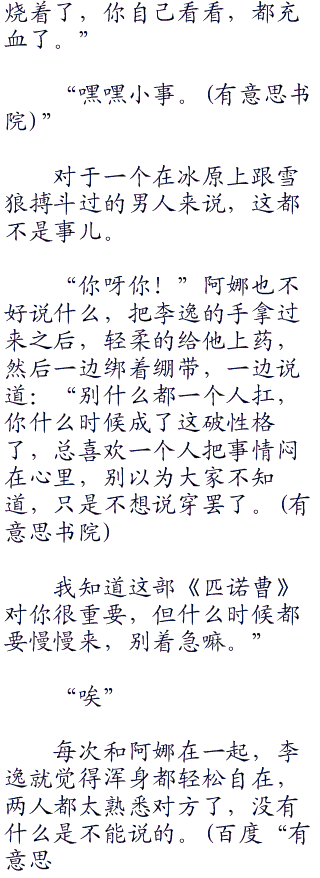 烧着了，你自己看看，都充
血了。”
“嘿嘿小事。(有意思书
院)”
对于一个在冰原上跟雪
狼搏斗过的男人来说，这都
不是事儿。
“你呀你！”阿娜也不
好说什么，把李逸的手拿过
来之后，轻柔的给他上药，
然后一边绑着绷带，一边说
道：“别什么都一个人扛，
你什么时候成了这破性格
了，总喜欢一个人把事情闷
在心里，别以为大家不知
道，只是不想说穿罢了。(有
意思书院)
我知道这部《匹诺曹》
对你很重要，但什么时候都
要慢慢来，别着急嘛。”
“唉”
每次和阿娜在一起，李
逸就觉得浑身都轻松自在，
两人都太熟悉对方了，没有
什么是不能说的。(百度“有
意思